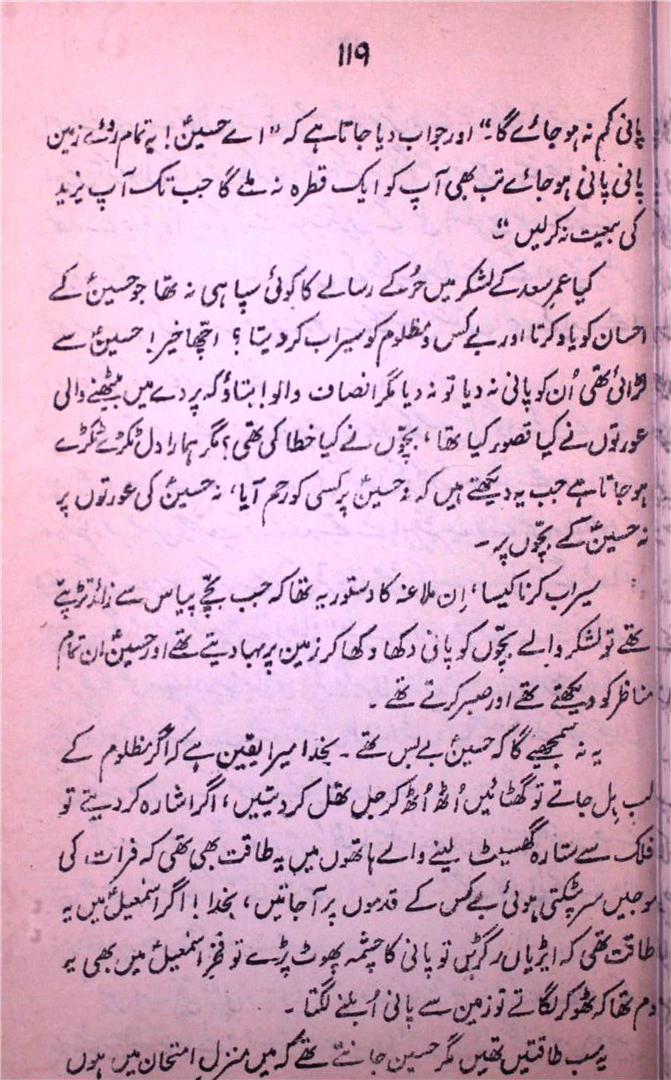 ۱۱۹
پانی کم نہ ہو جائے گا۔“ اور جواب دیا جاتا ہے کہ ”اے حسینؑ! یہ تمام روئے زمین
پانی پانی ہو جائے تب بھی آپ کو ایک قطرہ نہ ملے گا جب تک آپ یزید
کی بیعت نہ کرلیں۔“
کیا عمرِ سعد کے لشکر میں حُر کے رسالے کا کوئی سپاہی نہ تھا جو حسینؑ کے
احسان کو یاد کرتا اور بے کس و مظلوم کو سیراب کر دیتا؟ اچھا خیر! حسینؑ سے
لڑائی تھی اُن کو پانی نہ دیا تو نہ دیا مگر انصاف والو! بتاؤ کہ پردے میں بیٹھنے والی
عورتوں نے کیا قصور کیا تھا، بچّوں نے کیا خطا کی تھی؟ مگر ہمارا دل ٹکڑے ٹکڑے
ہو جاتا ہے جب یہ دیکھتے ہیں کہ نہ حسینؑ پر کسی کو رحم آیا، نہ حسینؑ کی عورتوں پر
نہ حسینؑ کے بچّوں پر۔
سیراب کرنا کیسا، اِن ملاعنہ کا دستور یہ تھا کہ جب بچّے پیاس سے زائد تڑپتے
تھے تو لشکر والے بچّوں کو پانی دکھا دکھا کر زمین پر بہا دیتے تھے اور حسینؑ ان تمام
مناظر کو دیکھتے تھے اور صبر کرتے تھے۔
یہ نہ سمجھیے گا کہ حسینؑ بے بس تھے۔ بخدا میرا یقین ہے کہ اگر مظلوم کے
لب ہِل جاتے تو گھٹائیں اُٹھ اُٹھ کر جل تھل کر دیتیں، اگر اشارہ کر دیتے تو
فلک سے ستارہ گھسیٹ لینے والے ہاتھوں میں یہ طاقت بھی تھی کہ فرات کی
موجیں سر پٹکتی ہوئی بے کس کے قدموں پر آجاتیں، بخدا! اگر اسمٰعیلؑ میں یہ
طاقت تھی کہ ایڑیاں رگڑیں تو پانی کا چشمہ پھوٹ پڑے تو فخرِ اسمٰعیلؑ میں بھی یہ
دم تھا کہ ٹھوکر لگاتے تو زمین سے پانی اُبلنے لگتا۔
یہ سب طاقتیں تھیں مگر حسین جانتے تھے کہ میں منزلِ امتحان میں ہوں